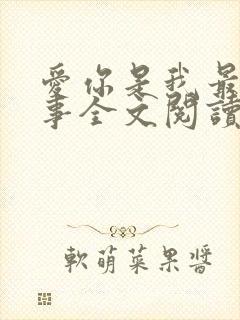 愛你是我最
事全文閱讀
軟萌菜果醬